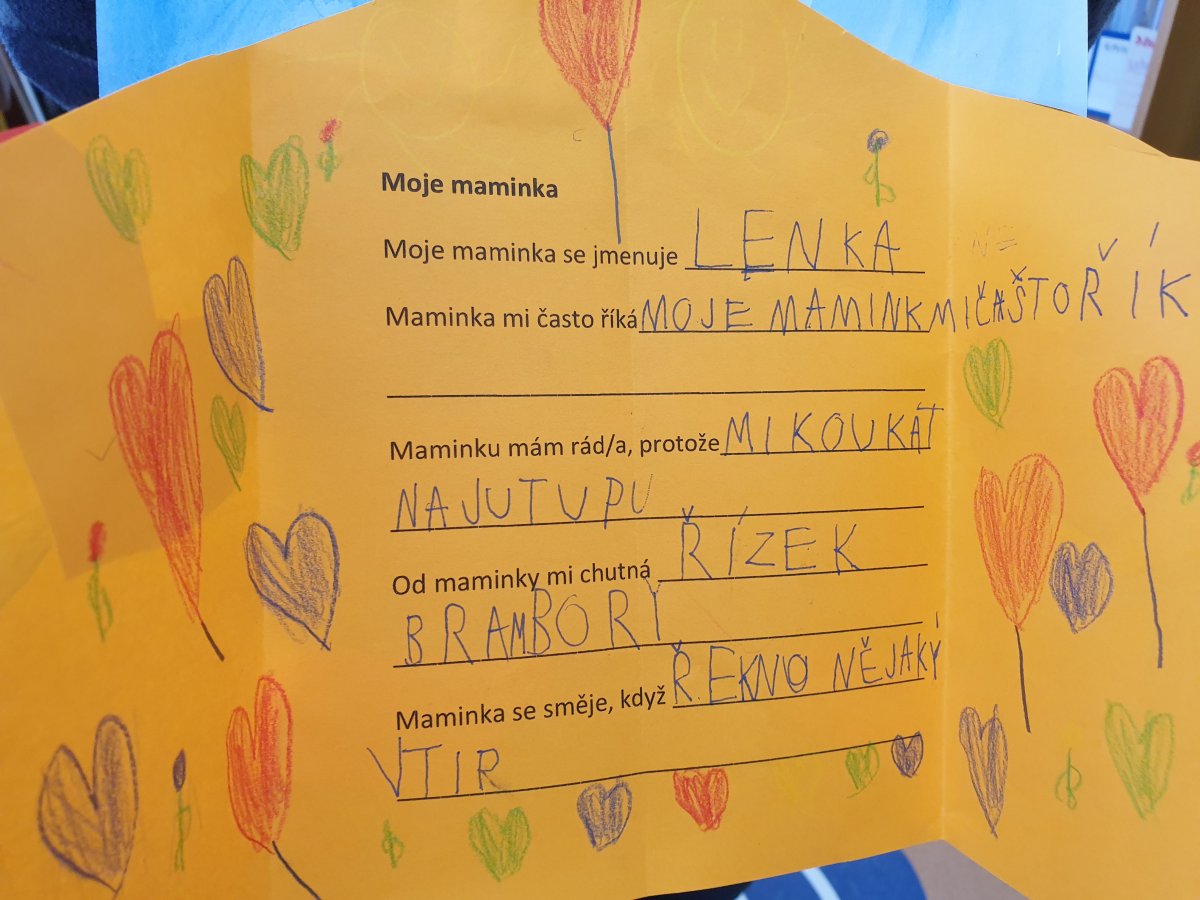 Moje maminka
Moje maminka se jmenuje LENKA
Maminka mi často říká MOJE MAMINK MIČAŠTOŘÍK
Maminku mám rád/a, protože MI KOUKAT
NAJUTUPU
Od maminky mi chutná ŘÍZEK
BRAMBORY
Maminka se směje, když ŘEKNO NĚJAKÝ
VTIR